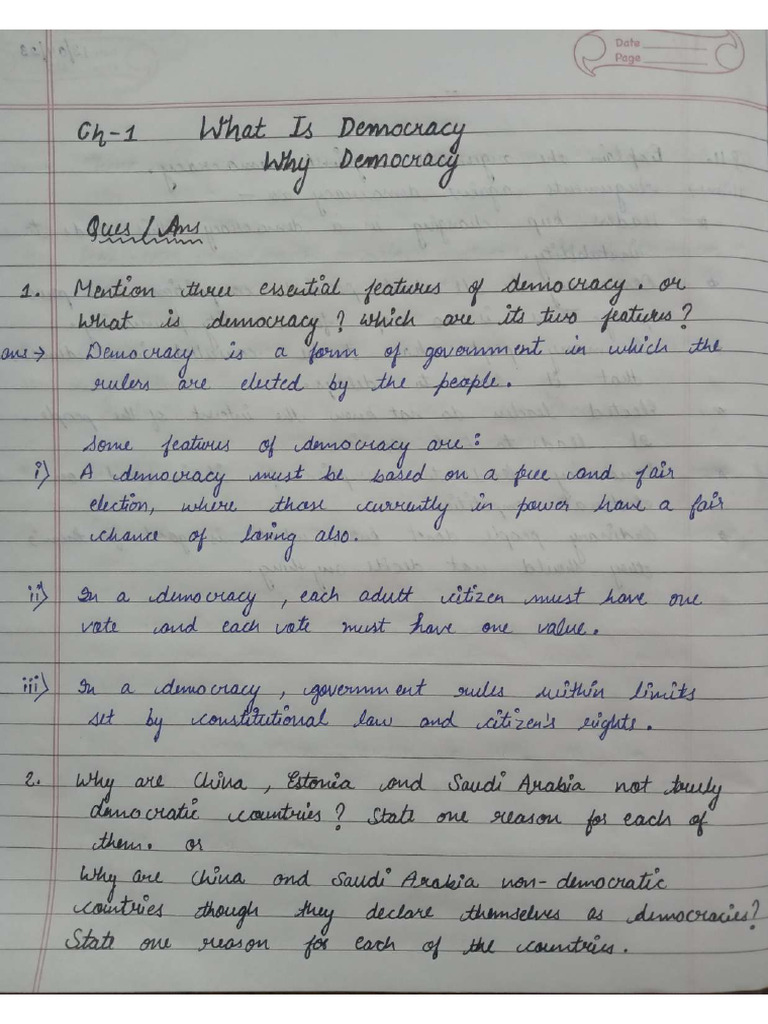 Date
Page
Ch-1 What Is Democracy
Why Democracy
Ques / Ans
1. Mention three essential features of democracy. or
What is democracy? which are its two features?
ans→ Democracy is a form of government in which the
rulers are elected by the people.
Some features of democracy are:
i) A democracy must be based on a free and fair
election, where those currently in power have a fair
chance of losing also.
ii) In a democracy, each adult citizen must have one
vote and each vote must have one value.
iii) In a democracy, government rules within limits
set by constitutional law and citizen's rights.
2. Why are China, Estonia and Saudi Arabia not truly
democratic countries? State one reason for each of
them. or
Why are China and Saudi Arabia non-democratic
countries though they declare themselves as democracies?
State one reason for each of the countries.